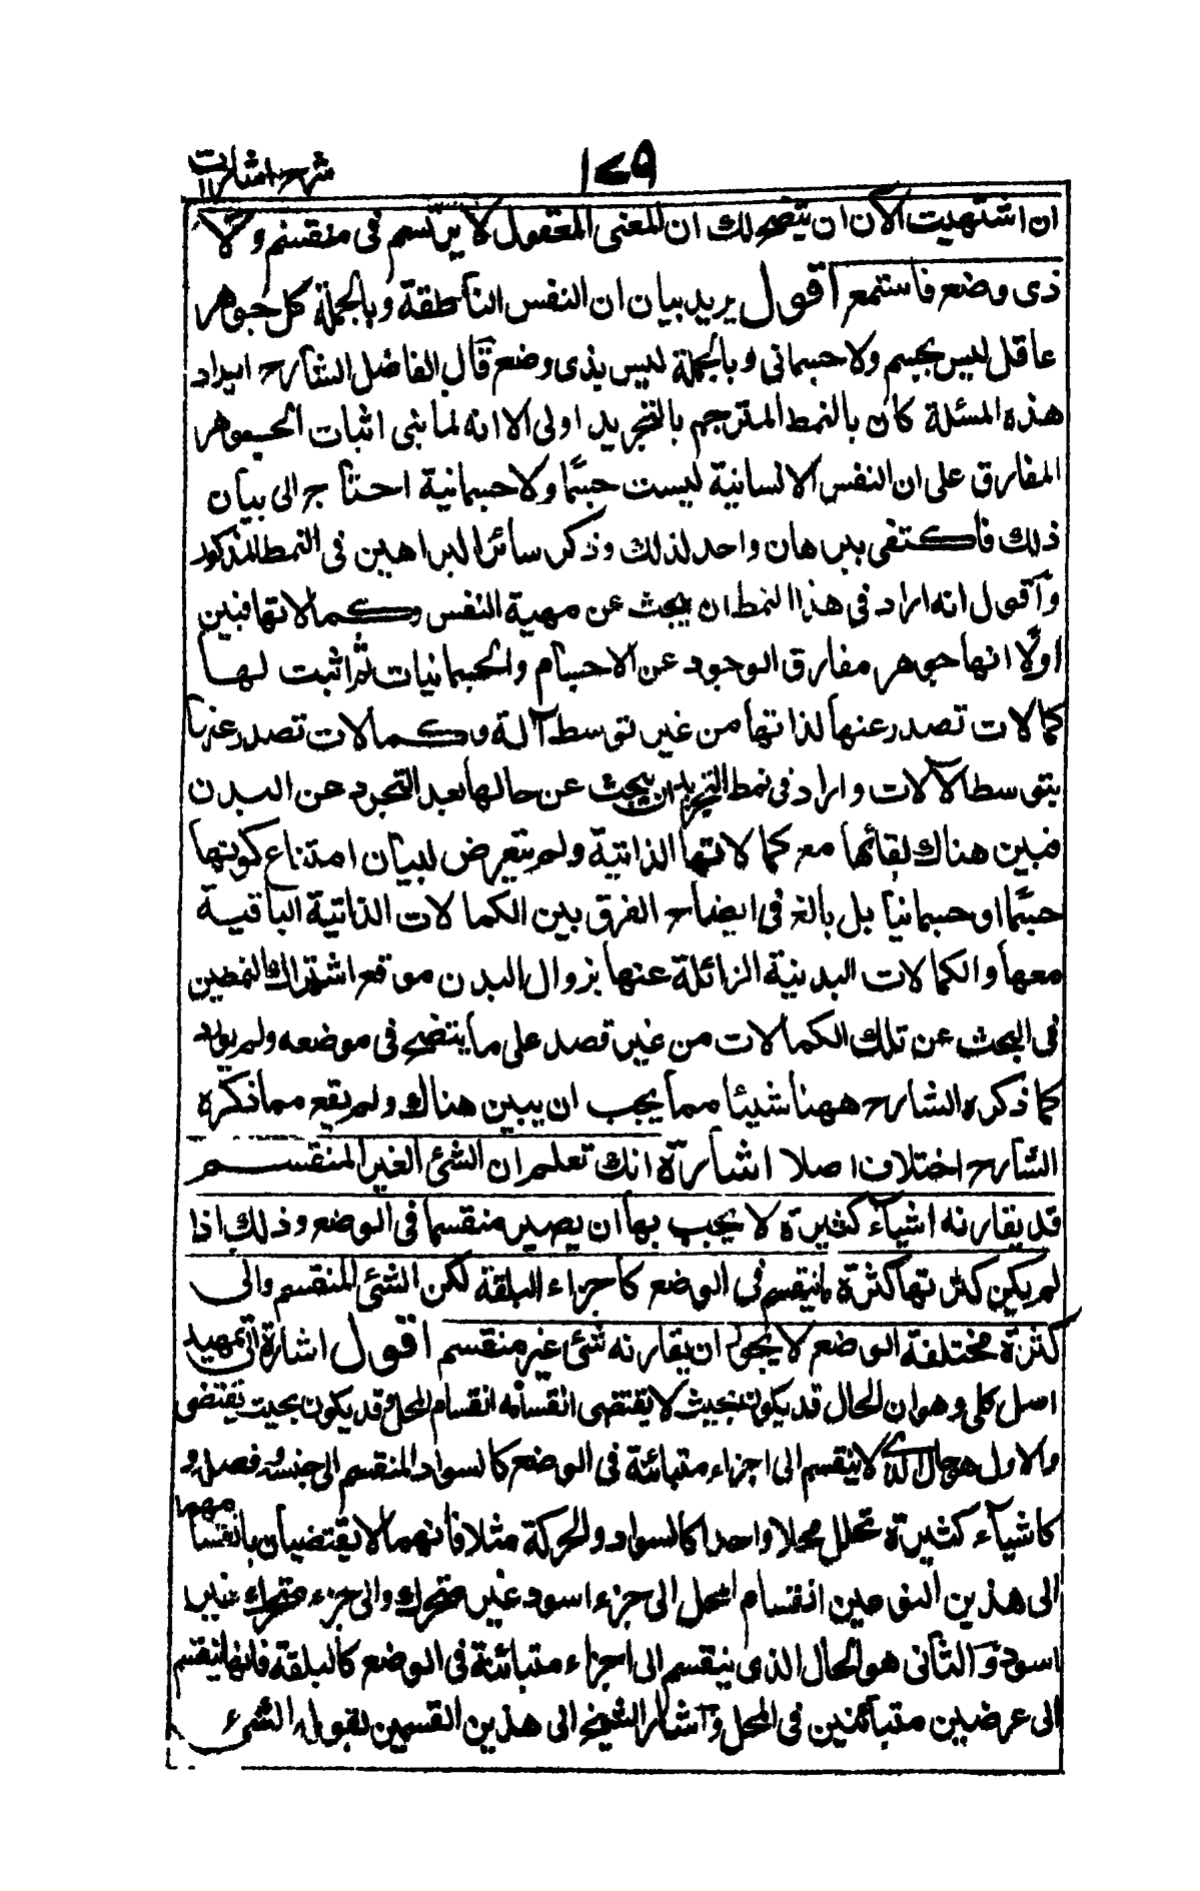 شرح اشارات
١٧٩
ان اشتهيت الآن ان يتضح لك ان المعنى المعقول لا يرتسم فى منقسم ولا
ذى وضع فاستمع اقول يريد بيان ان النفس الناطقة وبالجملة كل جوهر
عاقل ليس بجسم ولا جسمانى وبالجملة ليس بذى وضع قال الفاضل الشارح ايراد
هذه المسئلة كان بالنمط المترجم بالتجريد اولى الا انه لما بنى اثبات الجوهر
المفارق على ان النفس الانسانية ليست جسما ولا جسمانية احتاج الى بيان
ذلك فاكتفى ببرهان واحد لذلك وذكر سائر البراهين فى النمط المذكور
واقول انه اراد فى هذا النمط ان يبحث عن مهية النفس وكمالاتها فبين
اولا انها جوهر مفارق الوجود عن الاجسام والجسمانيات ثم اثبت لها
كمالات تصدر عنها لذاتها من غير توسط آلة وكمالات تصدر عنها
بتوسط الآلات واراد فى نمط التجريد ان يبحث عن حالها بعد التجرد عن البدن
فبين هناك بقائها مع كمالاتها الذاتية ولم يتعرض لبيان امتناع كونها
جسما او جسمانيا بل بالغ فى ايضاح الفرق بين الكمالات الذاتية الباقية
معها والكمالات البدنية الزائلة عنها بزوال البدن موقع اشتراك النمطين
فى البحث عن تلك الكمالات من غير قصد على ما يتضح فى موضعه ولم يورد
كما ذكره الشارح ههنا شيئا مما يجب ان يبين هناك ولم يقع مما ذكره
الشارح اختلاف اصلا اشارة انك تعلم ان الشئ الغير المنقسم
قد يقارنه اشياء كثيرة لا يجب بها ان يصير منقسما فى الوضع وذلك اذا
لم يكن كثرتها كثرة ما ينقسم فى الوضع كاجزاء البلقة لكن الشئ المنقسم والى
كثرة مختلفة الوضع لا يجوز ان يقارنه شئ غير منقسم اقول اشارة الى تمهيد
اصل كلى وهو ان الحال قد يكون بحيث لا يقتضى انقسامه انقسام المحل وقد يكون بحيث يقتضى
والاول هو حال الذى لا ينقسم الى اجزاء متبائنة فى الوضع كالسواد المنقسم الى جنسه وفصله و
كاشياء كثيرة تحل محلا واحدا كالسواد والحركة مثلا فانهما لا يقتضيان بانقسامهما
الى هذين النوعين انقسام المحل الى جزء اسود غير متحرك والى جزء متحرك غير
اسود والثانى هو الحال الذى ينقسم الى اجزاء متبائنة فى الوضع كالبلقة فانها تنقسم
الى عرضين متبائنين فى المحل واشار الشيخ الى هذين القسمين بقوله الشئ